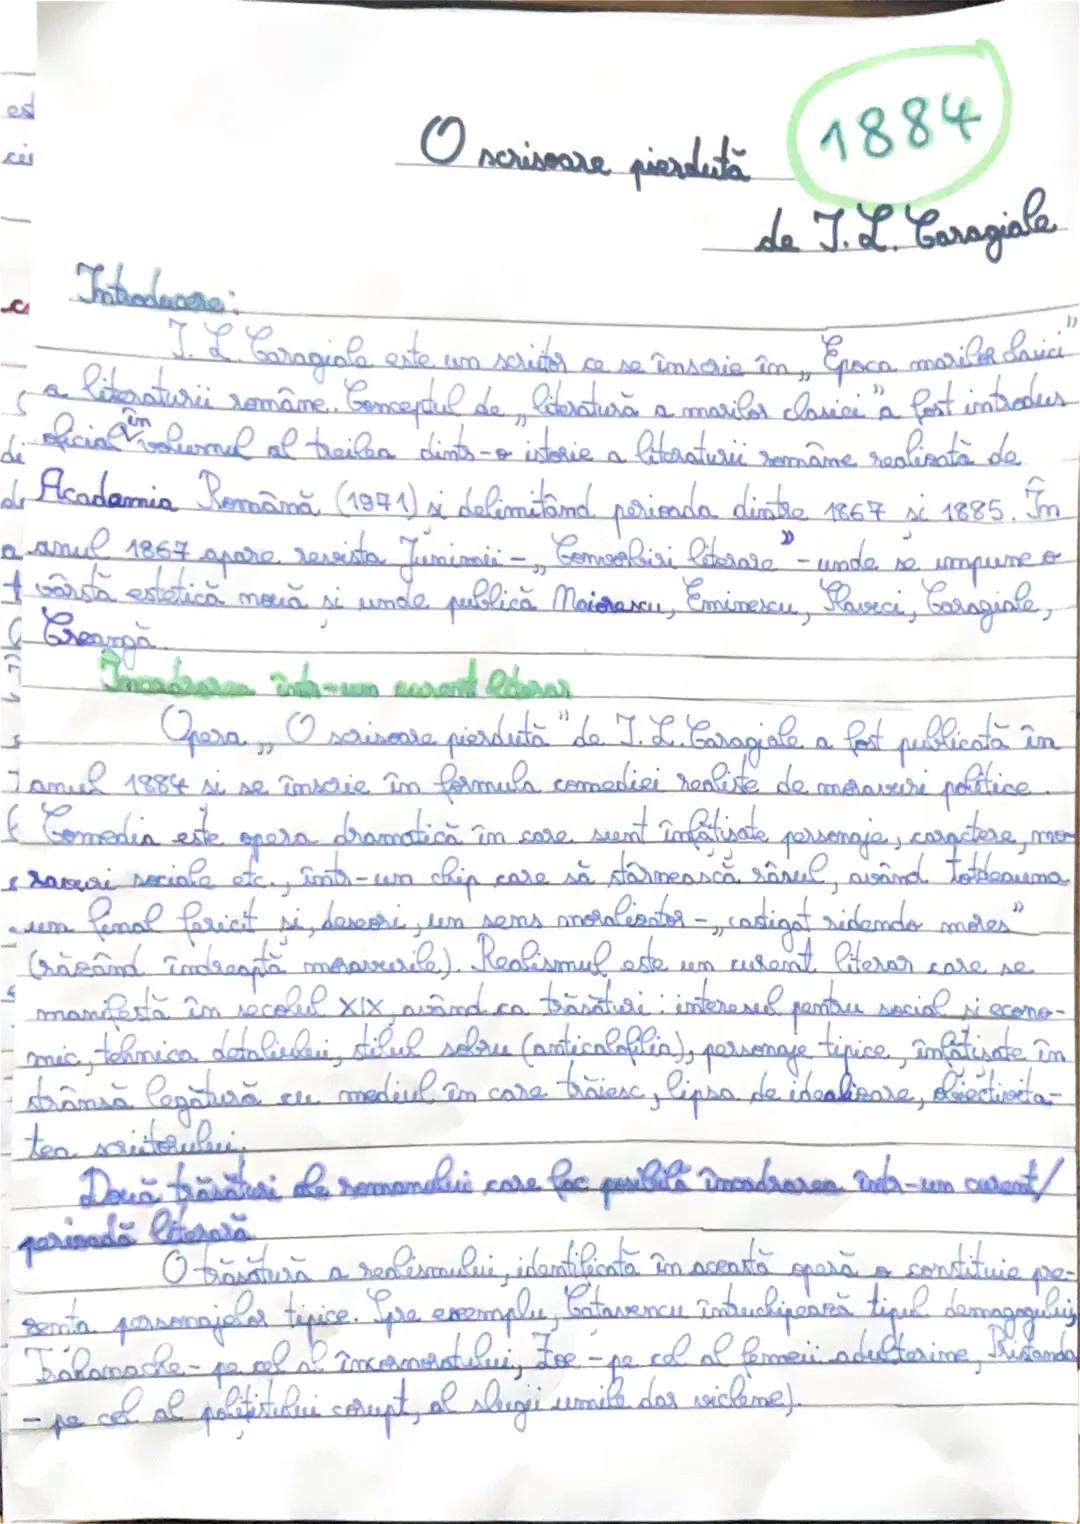 1884
O scrisoare pierdută
de I. L. Caragiale
Introducere:
I. L. Caragiale este un scriitor ce se înscrie în „Epoca marilor clasici”
a literaturii române. Conceptul de „literatură a marilor clasici” a fost introdus
oficial în volumul al treilea dintr-o istorie a literaturii române realizată de
Academia Română (1971) și delimitând perioada dintre 1867 și 1885. În
anul 1867 apare revista Junimii - „Convorbiri literare” - unde se impune o
vârstă estetică nouă și unde publică Maiorescu, Eminescu, Slavici, Caragiale,
Creangă.
Încadrarea într-un curent literar
Opera „O scrisoare pierdută” de I. L. Caragiale a fost publicată în
anul 1884 și se înscrie în formula comediei realiste de moravuri politice.
Comedia este opera dramatică în care sunt înfățișate personaje, caractere, mo-
ravuri sociale etc., într-un chip care să stârnească râsul, având totdeauna
un final fericit și, deseori, un sens moralizator - „castigat ridendo mores”
(râzând îndreaptă moravurile). Realismul este un curent literar care se
manifestă în secolul XIX, având ca trăsături: interesul pentru social și econo-
mic, tehnica detaliului, stilul sobru (anticalofilia), personaje tipice, înfățișate în
strânsă legătură cu mediul în care trăiesc, lipsa de idealizare, obiectivita-
tea scriitorului.
Două trăsături ale romanului care fac posibilă încadrarea într-un curent/
perioadă literară
O trăsătură a realismului, identificată în această operă o constituie pre-
zența personajelor tipice. Spre exemplu, Cațavencu întruchipează tipul demagogului,
Trahanache - pe cel al încornoratului, Zoe - pe cel al femeii adulterine, Pristanda
- pe cel al polițistului corupt, al slugii umile dar viclene).